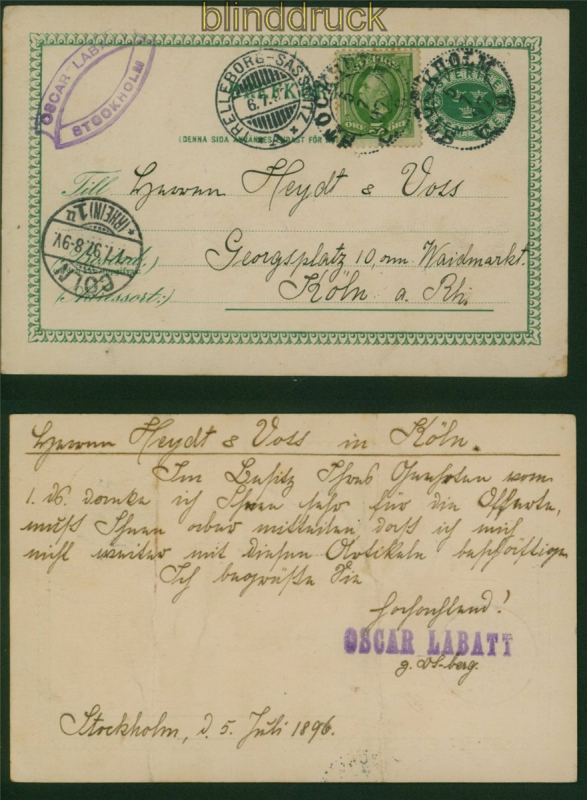 blinddruck
OSCAR LABATT
STOCKHOLM
TRELLEBORG-SASSNITZ
6.7.
BREFKORT
SVERIGE
ÖRE 5
STOCKHOLM
(DENNA SIDA
Till Herren Heydt & Voss
Georgsplatz 10, am Waidmarkt.
Köln a. Rh.
CÖLN
(RHEIN) 1u
8-9V.
Herren Heydt & Voss in Köln.
Im Besitz Ihres Geehrten vom
1. ds. danke ich Ihnen sehr für die Offerte,
muss Ihnen aber mitteilen dass ich mich
nicht weiter mit diesen Artikeln beschäftige.
Ich begrüße Sie
Hochachtend!
OSCAR LABATT
Stockholm, d. 5. Juli 1896.